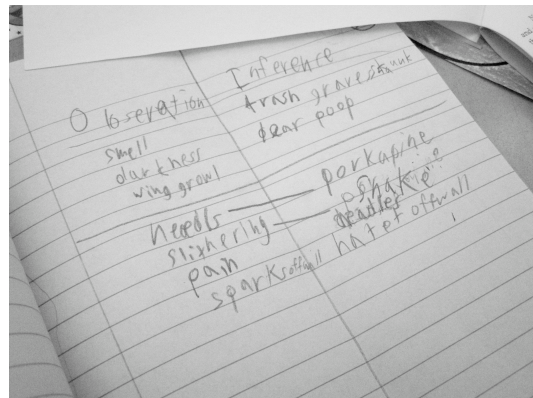 Obseration
smell
darkness
wing growl
Needls
slithering
pain
sparks offwall
Inference
trash grave skunk
dear poop
porkapine
snake
needles
hatet offwall